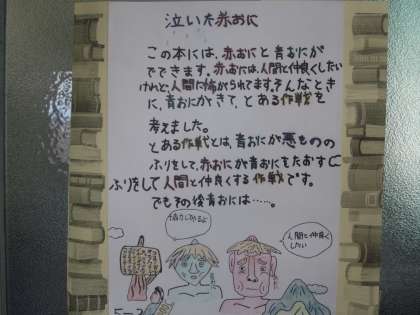 泣いた赤おに
この本には、赤おにと青おにが
でてきます。赤おには、人間と仲良くしたい
けれど、人間に怖がられてます。そんなとき
に、青おにがきて、とある作戦を
考えました。
とある作戦とは、青おにが悪ものの
ふりをして、赤おにが青おにをたおす
ふりをして人間と仲良くする作戦です。
でもその後青おには……。
協力しあうよ
人間と仲良く
したい